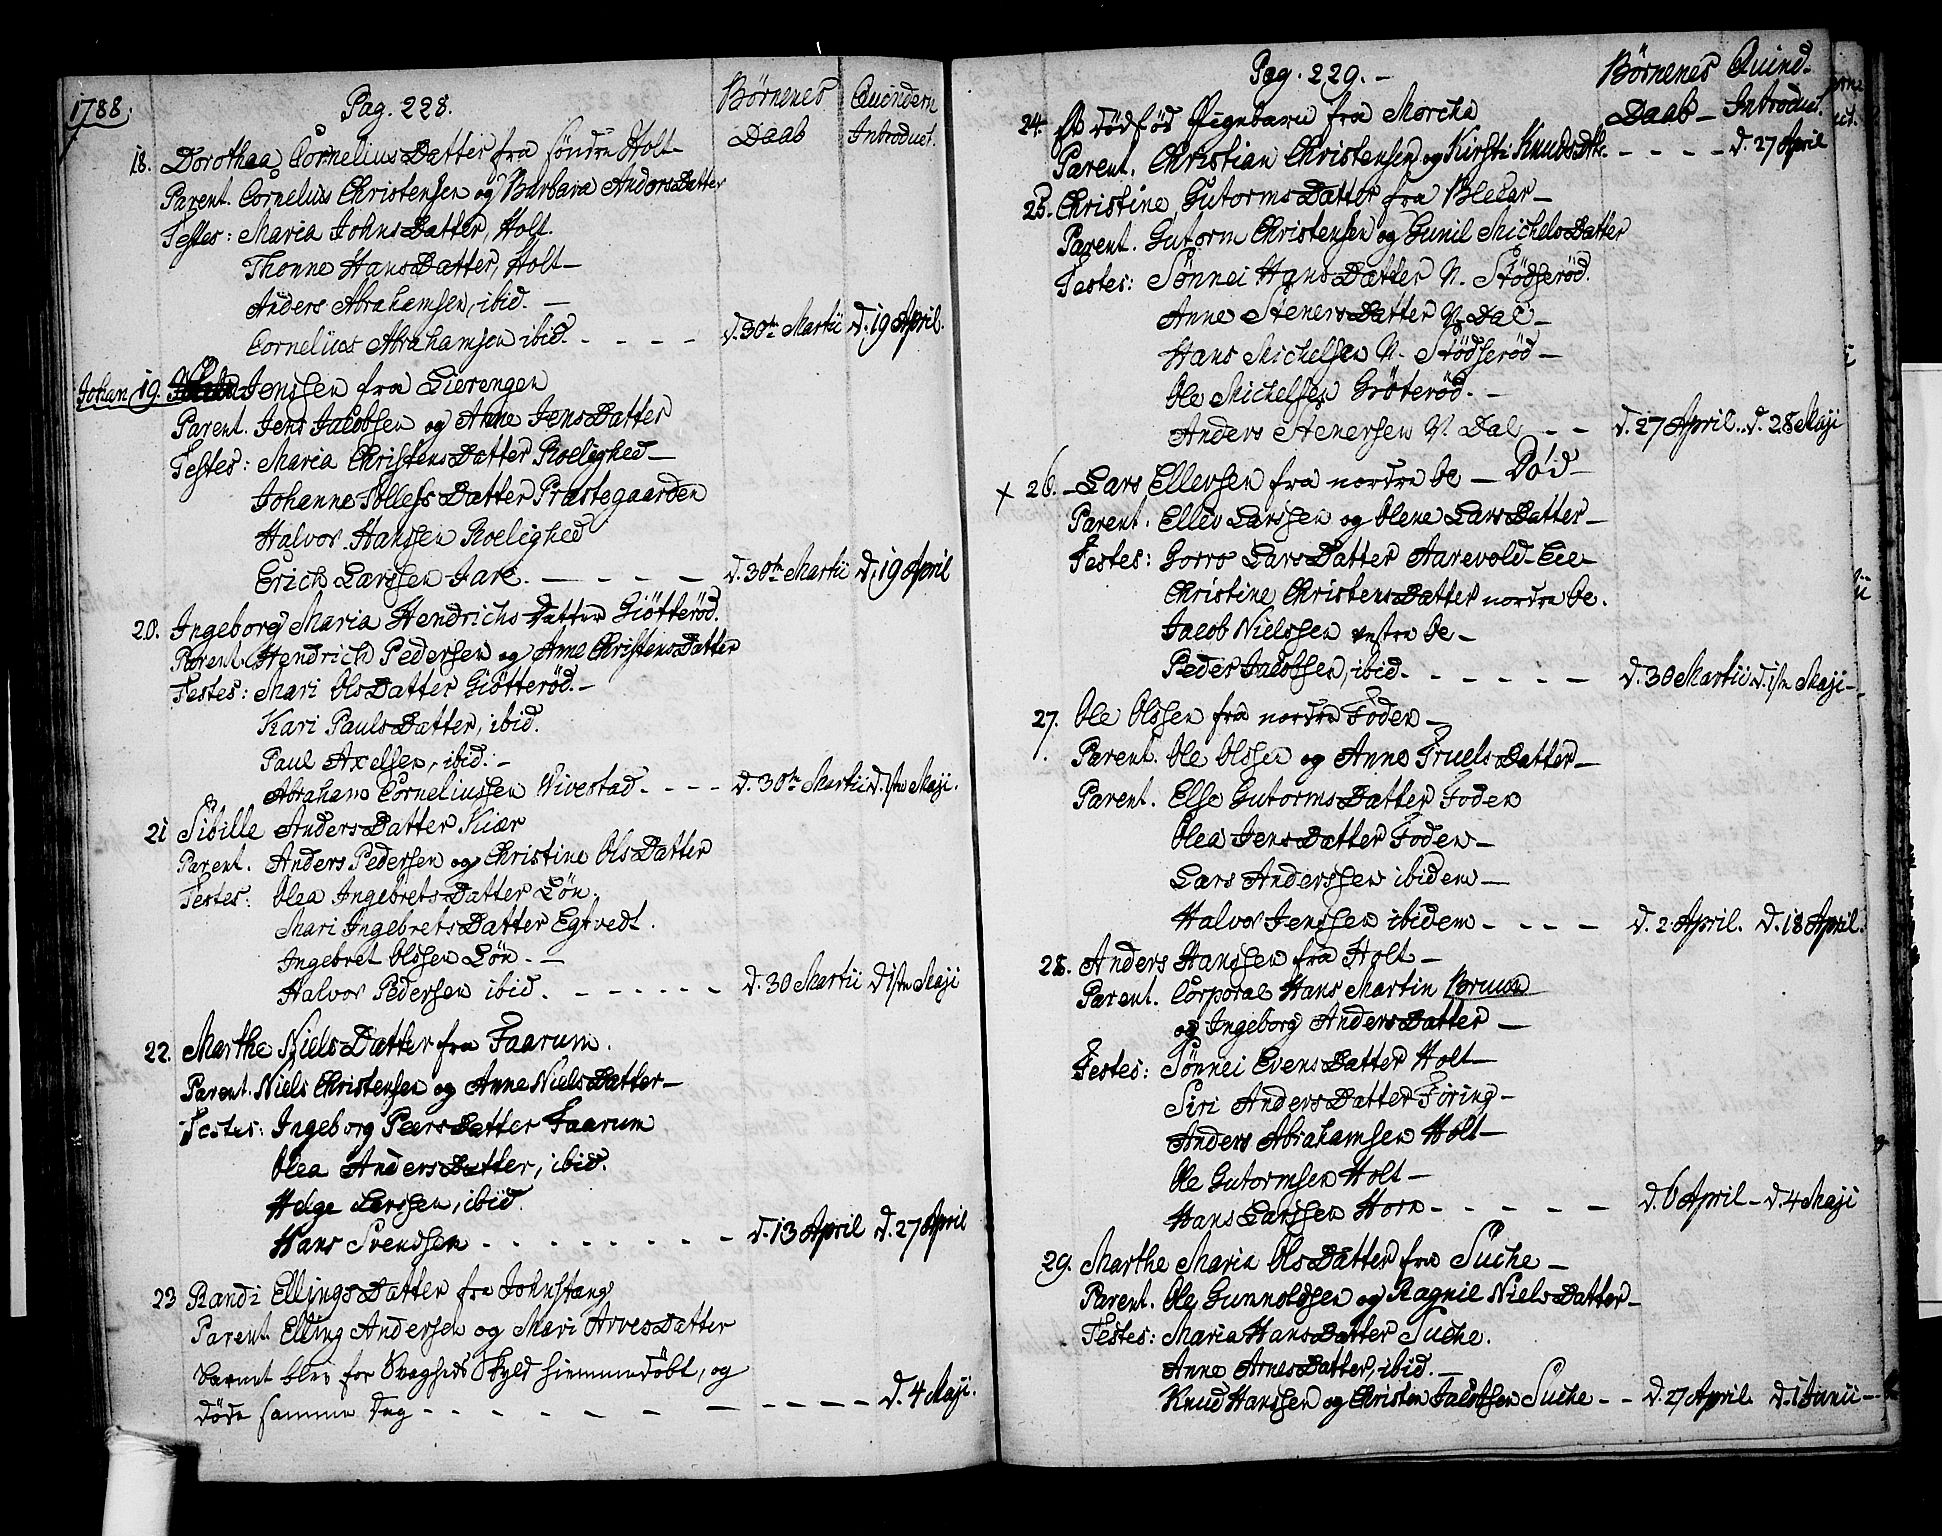 1788.
Pag. 228.
Börnenes Daab
Quindern Introduct.
18. Dorothaa Cornelius Datter fra söndre Holt
Parent. Cornelius Christensen og Barbara Anders Datter
Testes: Maria Johns Datter, Holt.
Thonne Hans Datter, Holt—
Anders Abrahamsen, ibid. —
Cornelius Abrahamsen ibid. - - - - d. 30te Martii d. 19 April.
Johan 19. Jenssen fra Lierengen
Parent. Jens Jacobsen og Anne Jens Datter
Testes: Maria Christens Datter Roelighed—
Johanne Tollefs Datter Præstegaarden
Halvor Hanssen Roelighed
Erich Larssen Jare. — - - - d. 30te Martii d. 19 April
20. Ingeborg Maria Hendrichs Datter Giötteröd.
Parent. Hendrich Pedersen og Anne Christens Datter
Testes: Mari Ols Datter Giötteröd.-
Kari Pauls Datter, ibid.
Paul Axelsen, ibid. -
Abraham Corneliussen Vivestad. - - - - d. 30te Martii d. 1ste Maji.
21 Sibille Anders Datter Kiær
Parent. Anders Pedersen og Christine Ols Datter
Testes: Olea Ingebrets Datter Lön.
Mari Ingebrets Datter Egtvedt.
Ingebret Olssen Lön. —
Halvor Pedersen ibid. - - - - - - d. 30 Martii d. 1ste Maji
22. Marthe Niels Datter fra Faarum.
Parent. Niels Christensen og Anne Niels Datter—
Testes: Ingeborg Peers Datter Faarum
Olea Anders Datter, ibid.
Helge Larssen, ibid.
Hans Svendsen - - - - - - - - d. 13 April d. 27 April
23 Randi Ellings Datter fra Johnstang
Parent Elling Andersen og Mari Arves Datter
Barnet blev for Svagheds Skyld hiemmedöbt, og
döde samme Dag - - - - - - - - - - - d. 4 Maji.
Pag. 229. -
Börnenes Daab —
Quind. Introduct.
24. Et dödföd Pigebarn fra Morcka
Parent. Christian Christensen og Kirsti Knuds Dtr. - - - - d. 27 April
25. Christine Gutorms Datter fra Bleckar—
Parent. Gutorm Christensen og Gunil Michels Datter
Testes: Sönnei Hans Datter N. Stödseröd.
Anne Steners Datter N. Dal—
Hans Michelsen N. Stödseröd—
Ole Michelsen Gröteröd. -
Anders Stenersen N. Dal - - d. 27 April.. d. 28 Maji
+ 26. Lars Ellevsen fra nordre Oe — Död—
Parent. Ellev Larssen og Olene Lars Datter—
Testes: Gorro Lars Datter Aarevold-Eie—
Christine Christens Datter nordre Oe.
Jacob Nielssen vestre Oe—
Peder Jacobsen, ibid. - - - - - d. 30 Martii d. 1ste Maji—
27. Ole Olssen fra nordre Foden—
Parent. Ole Olssen og Anne Truels Datter—
Parent. Else Gutorms Datter Foden
Olea Jens Datter Foden—
Lars Anderssen ibidem—
Halvor Jenssen ibidem - - - - d. 2 April. d. 18 April.
28. Anders Hanssen fra Holt—
Parent. Corporal Hans Martin Bruun
og Ingeborg Anders Datter—
Testes: Sönnei Evens Datter Holt—
Siri Anders Datter Föring—
Anders Abrahamsen Holt—
Ole Gutormsen Holt—
Hans Larssen Horn - - - - - d. 6 April — d. 4 Maji
29. Marthe Maria Ols Datter fra Suche—
Parent. Ole Gunnoldsen og Ragnil Niels Datter—
Testes: Maria Hans Datter Suche.
Anne Arnes Datter, ibid. —
Knud Hanssen og Christen Jacobsen Suche - - d. 27 April d. 1 Junii—